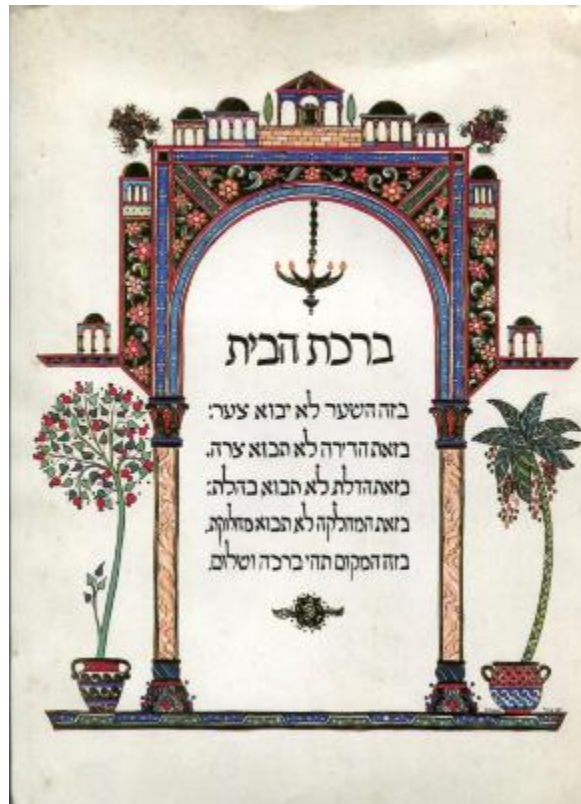 ברכת הבית
בזה השער לא יבוא צער:
בזאת הדירה לא תבוא צרה.
בזאת הדלת לא תבוא בהלת:
בזאת המחלקה לא תבוא מחלוקת.
בזה המקום תהי ברכה ושלום.